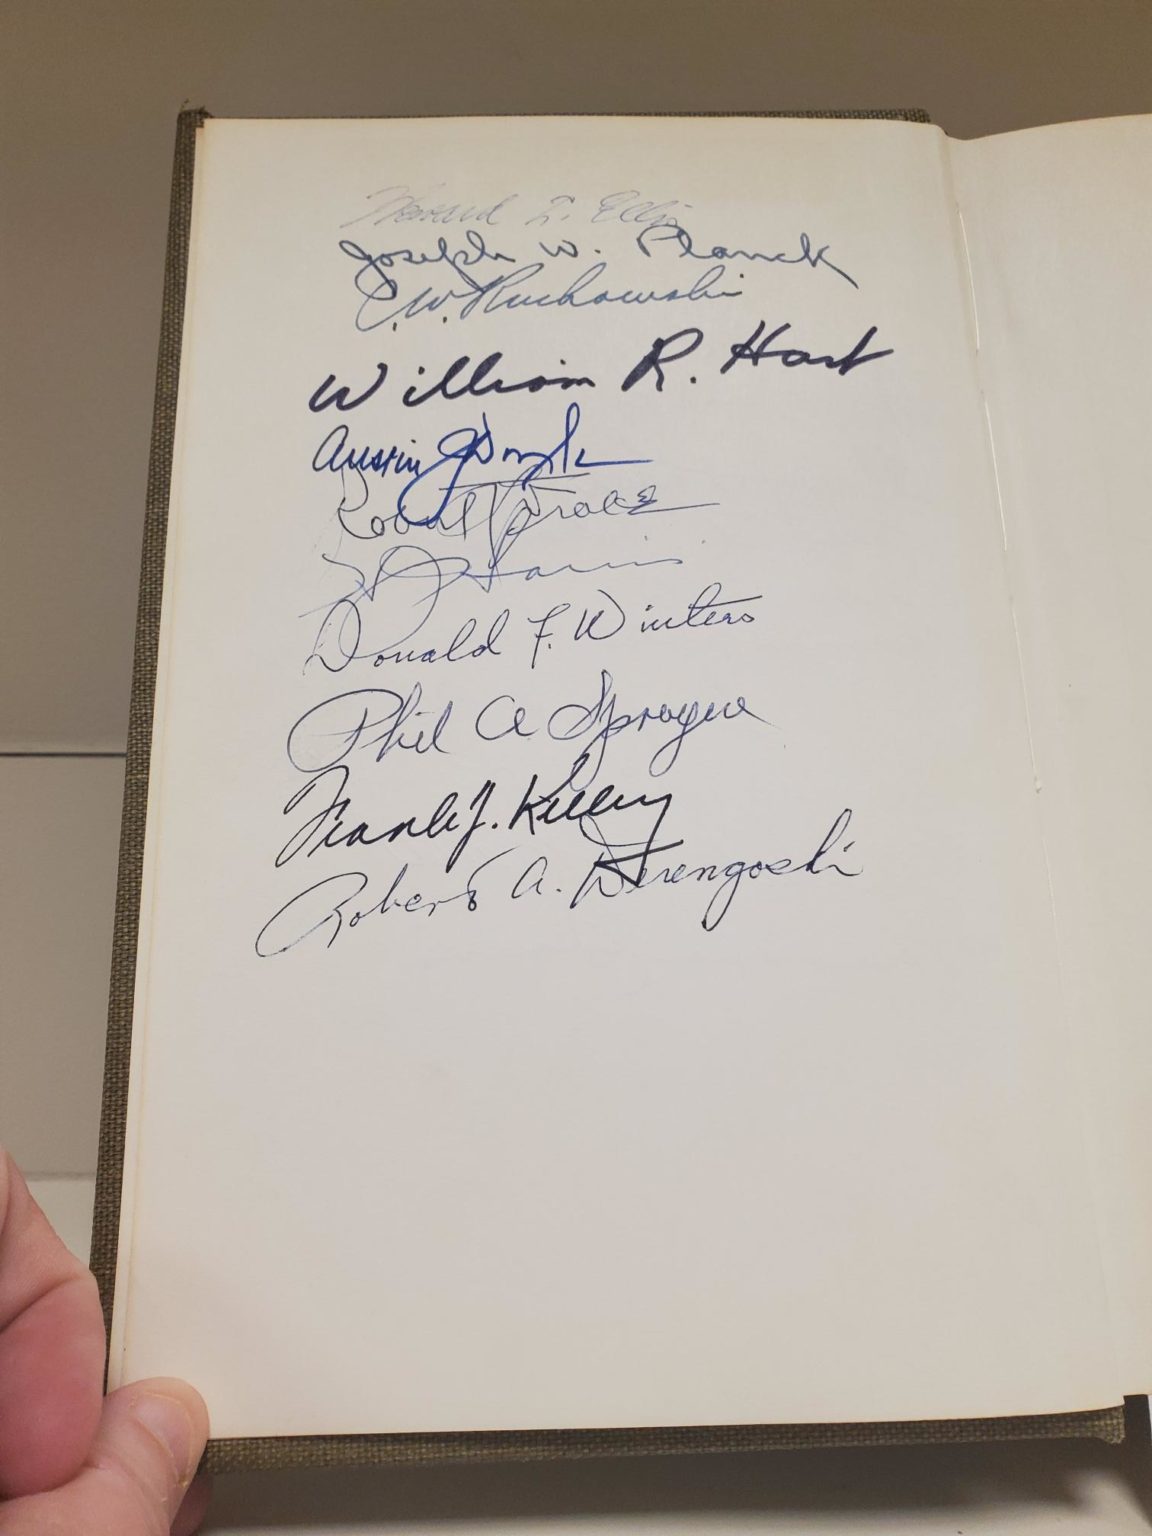 Howard L. Ellis
Joseph W. Planck
C. W. Ruchowski
William R. Hart
Austin J. Doyle
Robert
Harris
Donald F. Winters
Phil A Sprague
Frank J. Kelley
Robert A. Derengoski